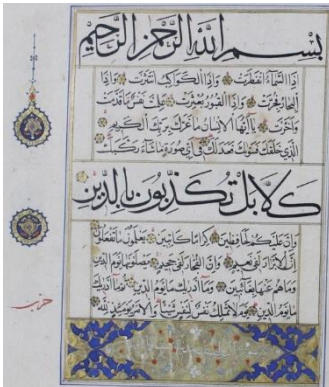 بسم الله الرحمن الرحيم
اذا السماء انفطرت واذا الكواكب انتثرت واذا
البحار فجرت واذا القبور بعثرت علمت نفس ما قدمت
واخرت يا ايها الانسان ما غرك بربك الكريم
الذي خلقك فسواك فعدلك في اي صورة ما شاء ركبك
كلا بل تكذبون بالدين
وان عليكم لحافظين كراما كاتبين يعلمون ما تفعلون
ان الابرار لفي نعيم وان الفجار لفي جحيم يصلونها يوم الدين
وما هم عنها بغائبين وما ادراك ما يوم الدين ثم ما ادراك
ما يوم الدين يوم لا تملك نفس لنفس شيئا والامر يومئذ لله
حزب